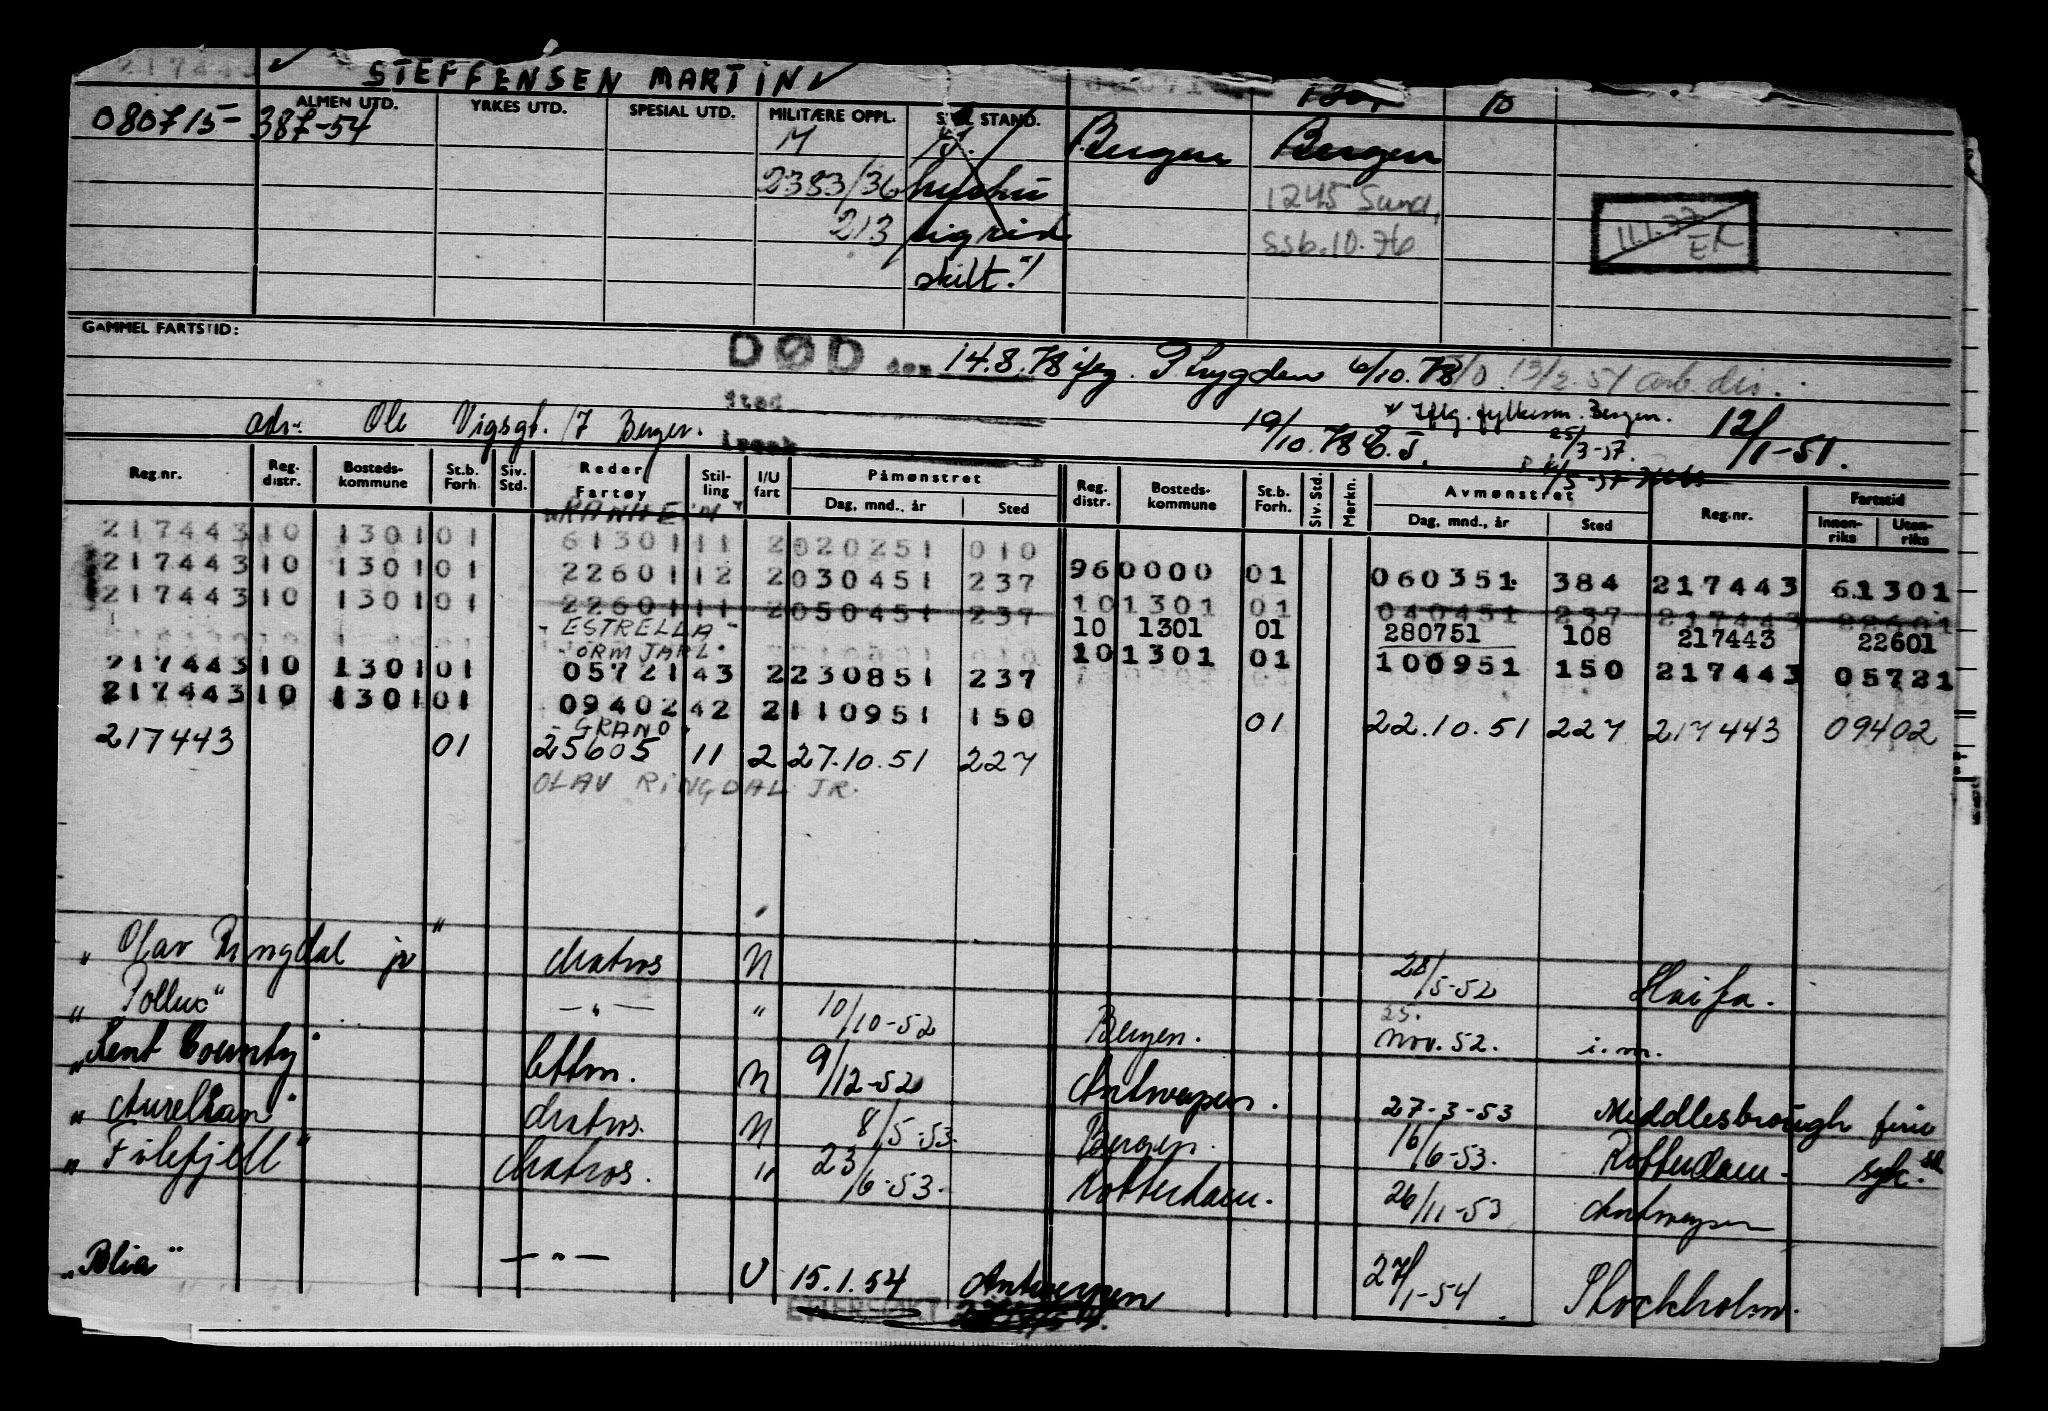 217443 STEFFENSEN MARTIN 10
ALMEN UTD. YRKES UTD. SPESIAL UTD. MILITÆRE OPPL. STAND.
080715- 387-54 M Bergen Bergen
2383/36 1245 Sund,
213 sigrid ssb.10.76
skilt.
ER
GAMMEL FARTSTID:
DØD den 14.8.78 Trygden 6/10.78 13/2.51
sted
adr: Ole Vigsgt. 17 Bergen. 19/10.78 Bergen. 25/3-57. 12/1-51.
Reg.nr. Reg. distr. Bosteds- kommune St.b. Forh. Siv. Std. Reder Fartøy Stil- ling I/U fart Påmønstret Dag, mnd., år Sted Reg. distr. Bosteds- kommune St.b. Forh. Siv. Std. Merkn. Avmønstret Dag, mnd., år Sted Reg.nr. Fartstid Innen- riks Uten- riks
RANHEIM
217443 10 1301 01 61301 11 2 020251 010
217443 10 1301 01 22601 12 2 030451 237 96 0000 01 060351 384 217443 61301
217443 10 1301 01 22601 11 2 050451 237 10 1301 01 040451 237 217443 22601
- ESTRELLA - 10 1301 01 280751 108 217443 22601
- ORM JARL -
217443 10 1301 01 05721 43 2 230851 237 10 1301 01 100951 150 217443 05721
217443 10 1301 01 09402 42 2 110951 150 01 22.10.51 227 217443 09402
- GRANO -
217443 01 25605 11 2 27.10.51 227
OLAV RINGDAL JR.
" Olav Ringdal jr " Matros N 28/5-52 Haifa.
" Pollux" - " - " 10/10-52 Bergen. 25. nov. 52. i.m.
"Kent County" lettm. N 9/12-52 Antwerpen. 27-3-53 Middlesbrough
" Aurelian" Matros. N 8/5-53. Bergen. 16/6-53. Rotterdam. syk.
" Filefjell" Matros. " 23/6-53. Rotterdam. 26/11-53 Antwerpen
"Blia" - " - U 15.1.54 Antwerpen 27/1-54 Stockholm.